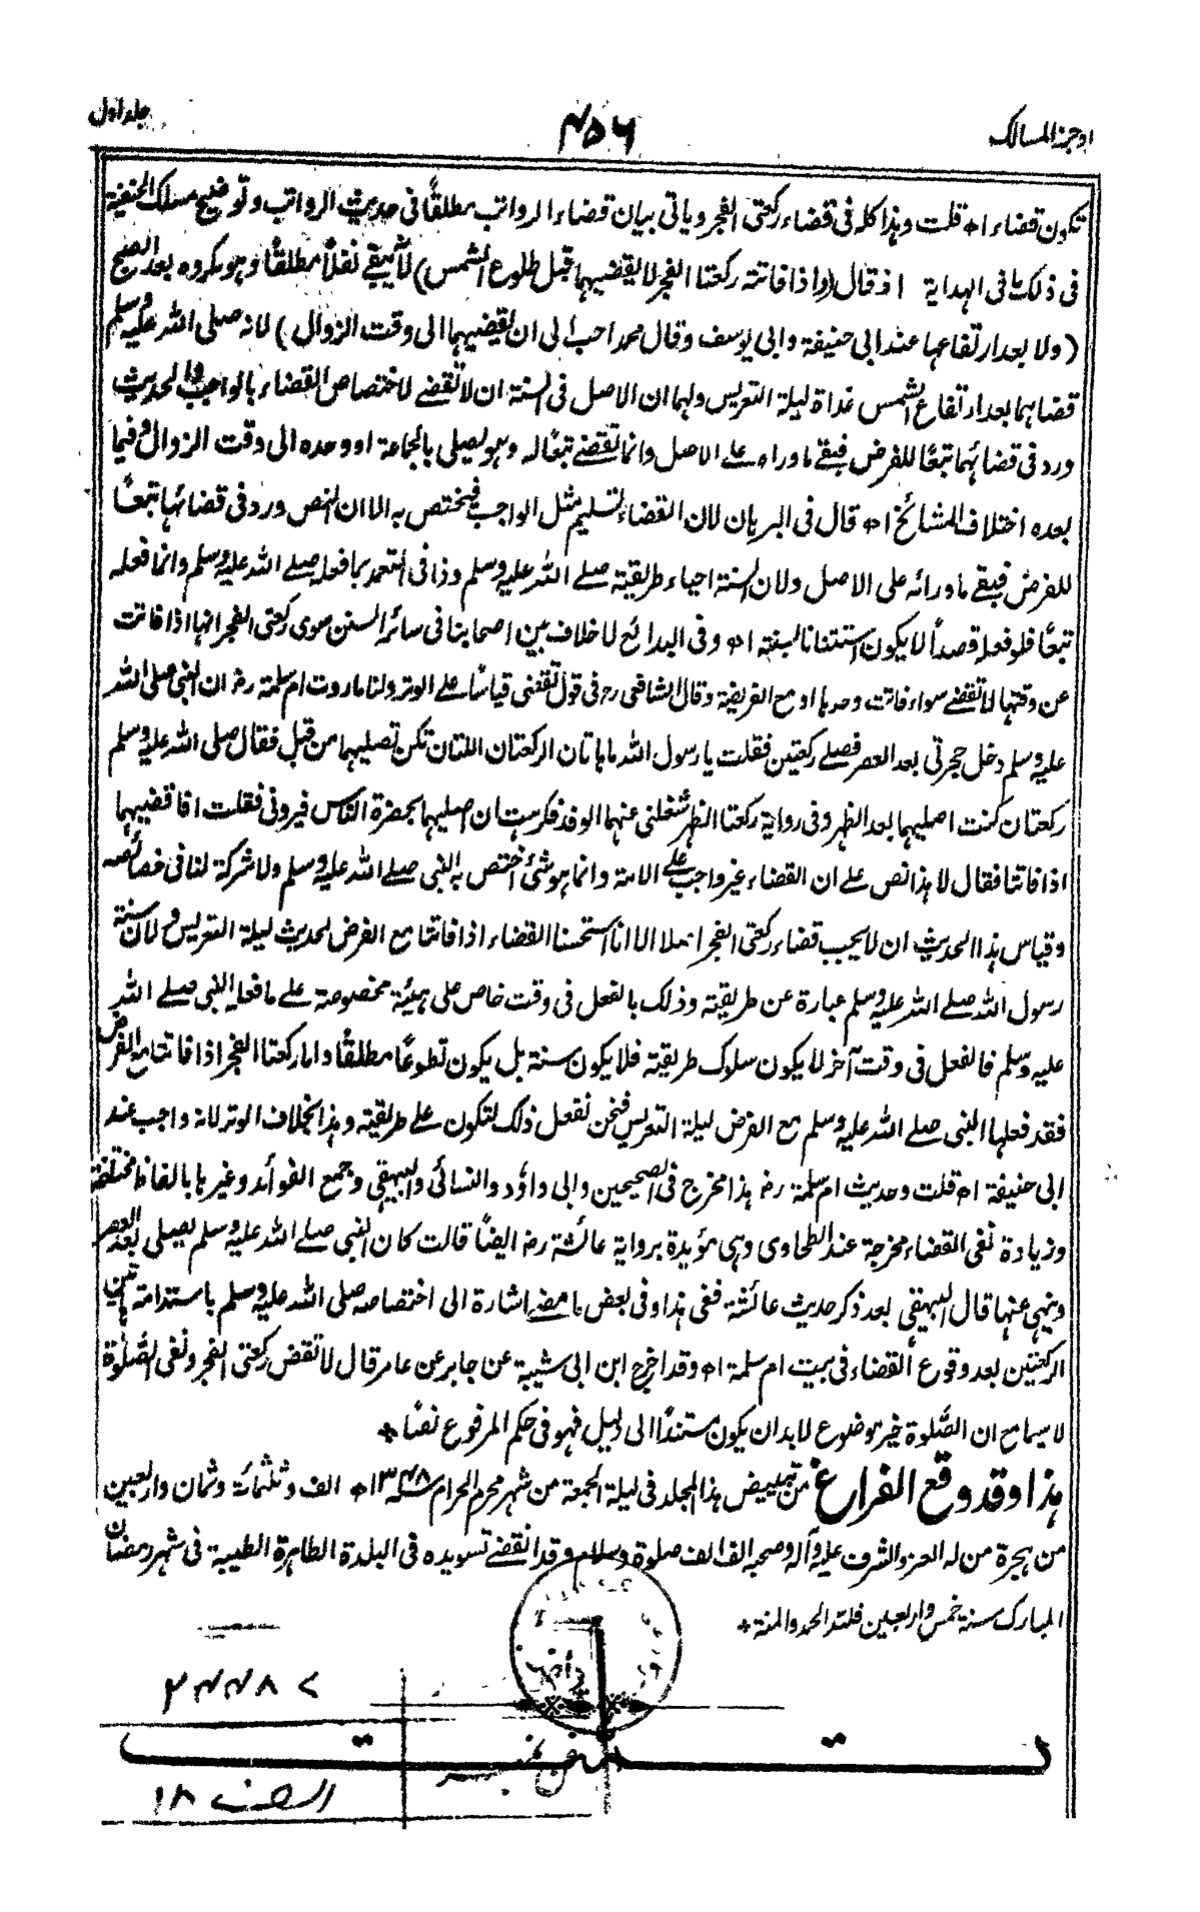 اوجز المسالک
۴۵۶
جلد اول
تکون قضاء اھ قلت وہذا کلہ فی قضاء رکعتی الفجر ویاتی بیان قضاء الرواتب مطلقًا فی حدیث الرواتب وتوضیح مسلک الحنفیۃ
فی ذلک ما فی الہدایۃ اذ قال (واذا فاتتہ رکعتا الفجر لا یقضیہما قبل طلوع الشمس) لانہ یبقے نفلاً مطلقًا وہو مکروہ بعد الصبح
(ولا بعد ارتفاعہا عند ابی حنیفۃ وابی یوسف وقال محمد احب الی ان یقضیہما الی وقت الزوال) لانہ صلی اللہ علیہ وسلم
قضاہما بعد ارتفاع الشمس غداۃ لیلۃ التعریس ولہما ان الاصل فی السنۃ ان لا تقضے لاختصاص القضاء بالواجب والحدیث
ورد فی قضائہما تبعًا للفرض فبقے ما وراہ علے الاصل وانما تقضے تبعًا لہ وہو یصلی بالجماعۃ او وحدہ الی وقت الزوال وفیما
بعدہ اختلاف المشائخ اھ قال فی البرہان لان القضاء تسلیم مثل الواجب فیختص بہ الا ان النص ورد فی قضائہا تبعًا
للفرض فبقے ما ورائہ علی الاصل ولان السنۃ احیاء طریقتہ صلے اللہ علیہ وسلم وذا فی التعمد بما فعلہ صلے اللہ علیہ وسلم وانما فعلہ
تبعًا فلو فعلہ قصداً لا یکون استنانا لسنتہ اھ وفی البدائع لا خلاف بین اصحابنا فی سائر السنن سوی رکعتی الفجر انہا اذا فاتت
عن وقتہا لا تقضے سواء فاتت وحدہا او مع الفریضۃ وقال الشافعی رح فی قول تقضی قیاسًا علے الوتر ولنا ما روت ام سلمۃ رض ان النبی صلی اللہ
علیہ وسلم دخل حجرتی بعد العصر فصلے رکعتین فقلت یا رسول اللہ ما ہاتان الرکعتان اللتان لم تکن تصلیہما من قبل فقال صلی اللہ علیہ وسلم
رکعتان کنت اصلیہما بعد الظہر وفی روایۃ رکعتا الظہر شغلنی عنہما الوفد فکرہت ان اصلیہما بحضرۃ الناس فیرونی فقلت افاقضیہما
اذا فاتتا فقال لا ہذا نص علے ان القضاء غیر واجب علی الامۃ وانما ہو شیٔ اختص بہ النبی صلے اللہ علیہ وسلم ولا شرکۃ لنا فی خصائصہ
وقیاس ہذا الحدیث ان لا یجب قضاء رکعتی الفجر اصلا الا انا استحسنا القضاء اذا فاتتا مع الفرض لحدیث لیلۃ التعریس ولان سنۃ
رسول اللہ صلے اللہ علیہ وسلم عبارۃ عن طریقتہ وذلک بالفعل فی وقت خاص علی ہیئۃ مخصوصۃ علے ما فعلہ النبی صلے اللہ
علیہ وسلم فالفعل فی وقت آخر لا یکون سلوک طریقتہ فلا یکون سنۃ بل یکون تطوعًا مطلقًا واما رکعتا الفجر اذا فاتتا مع الفرض
فقد فعلہا النبی صلے اللہ علیہ وسلم مع الفرض لیلۃ التعریس فنحن نفعل ذلک لتکون علے طریقتہ وہذا بخلاف الوتر لانہ واجب عند
ابی حنیفۃ اھ قلت وحدیث ام سلمۃ رض ہذا مخرج فی الصحیحین وابی داؤد والنسائی والبیہقی وجمع الفوائد وغیرہا بالفاظ مختلفۃ
وزیادۃ نفی القضاء مخرجۃ عند الطحاوی وہی مؤیدۃ بروایۃ عائشۃ رض ایضًا قالت کان النبی صلے اللہ علیہ وسلم یصلی بعد العصر
وینہی عنہا قال البیہقی بعد ذکر حدیث عائشۃ ففی ہذا وفی بعض ما مضے اشارۃ الی اختصاصہ صلی اللہ علیہ وسلم باستدامۃ ہاتین
الرکعتین بعد وقوع القضاء فی بیت ام سلمۃ اھ وقد اخرج ابن ابی شیبۃ عن جابر عن عامر قال لا تقض رکعتی الفجر ونفی الصلوٰۃ
لا سیما مع ان الصلوۃ خیر موضوع لا بد ان یکون مستندًا الی دلیل فہو فی حکم المرفوع نصًا *
ہذا وقد وقع الفراغ من تبییض ہذا المجلد فی لیلۃ الجمعۃ من شہر محرم الحرام سنہ ۱۳۴۸ھ الف وثلثمائۃ وثمان واربعین
من ہجرۃ من لہ العز والشرف علیہ وآلہ وصحبہ الف الف صلوۃ وسلام وقد انقضے تسویدہ فی البلدۃ الطاہرۃ الطیبۃ فی شہر رمضان
المبارک سنۃ خمس واربعین فللہ الحمد والمنۃ *
تمت